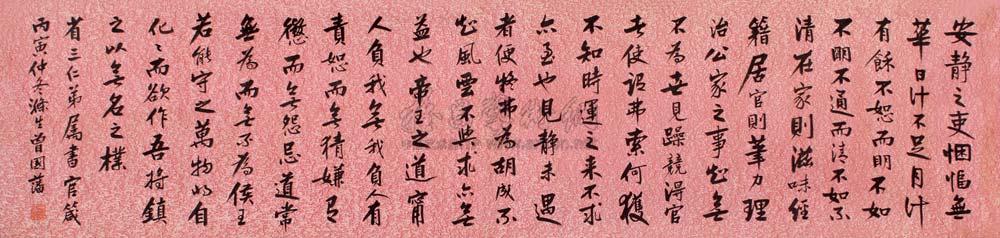 安静之吏悃愊無
華日計不足月計
有餘不恕而明不如
不明不通而清不如不
清在家則滋味經
籍居官則筆力理
治公家之事知無
不為世見躁競得官
者便謂弗索何獲
不知時運之来不求
亦至也見静未遇
者便將弗為胡成不
知風雲不與求亦無
益也帝王之道甯
人負我無我負人有
責恕而無猜嫌有
懲而無怨忌道常
無為而無不為侯王
若能守之萬物將自
化々而欲作吾將鎮
之以無名之樸
省三仁弟属書官箴
丙寅仲冬滌生曾國藩